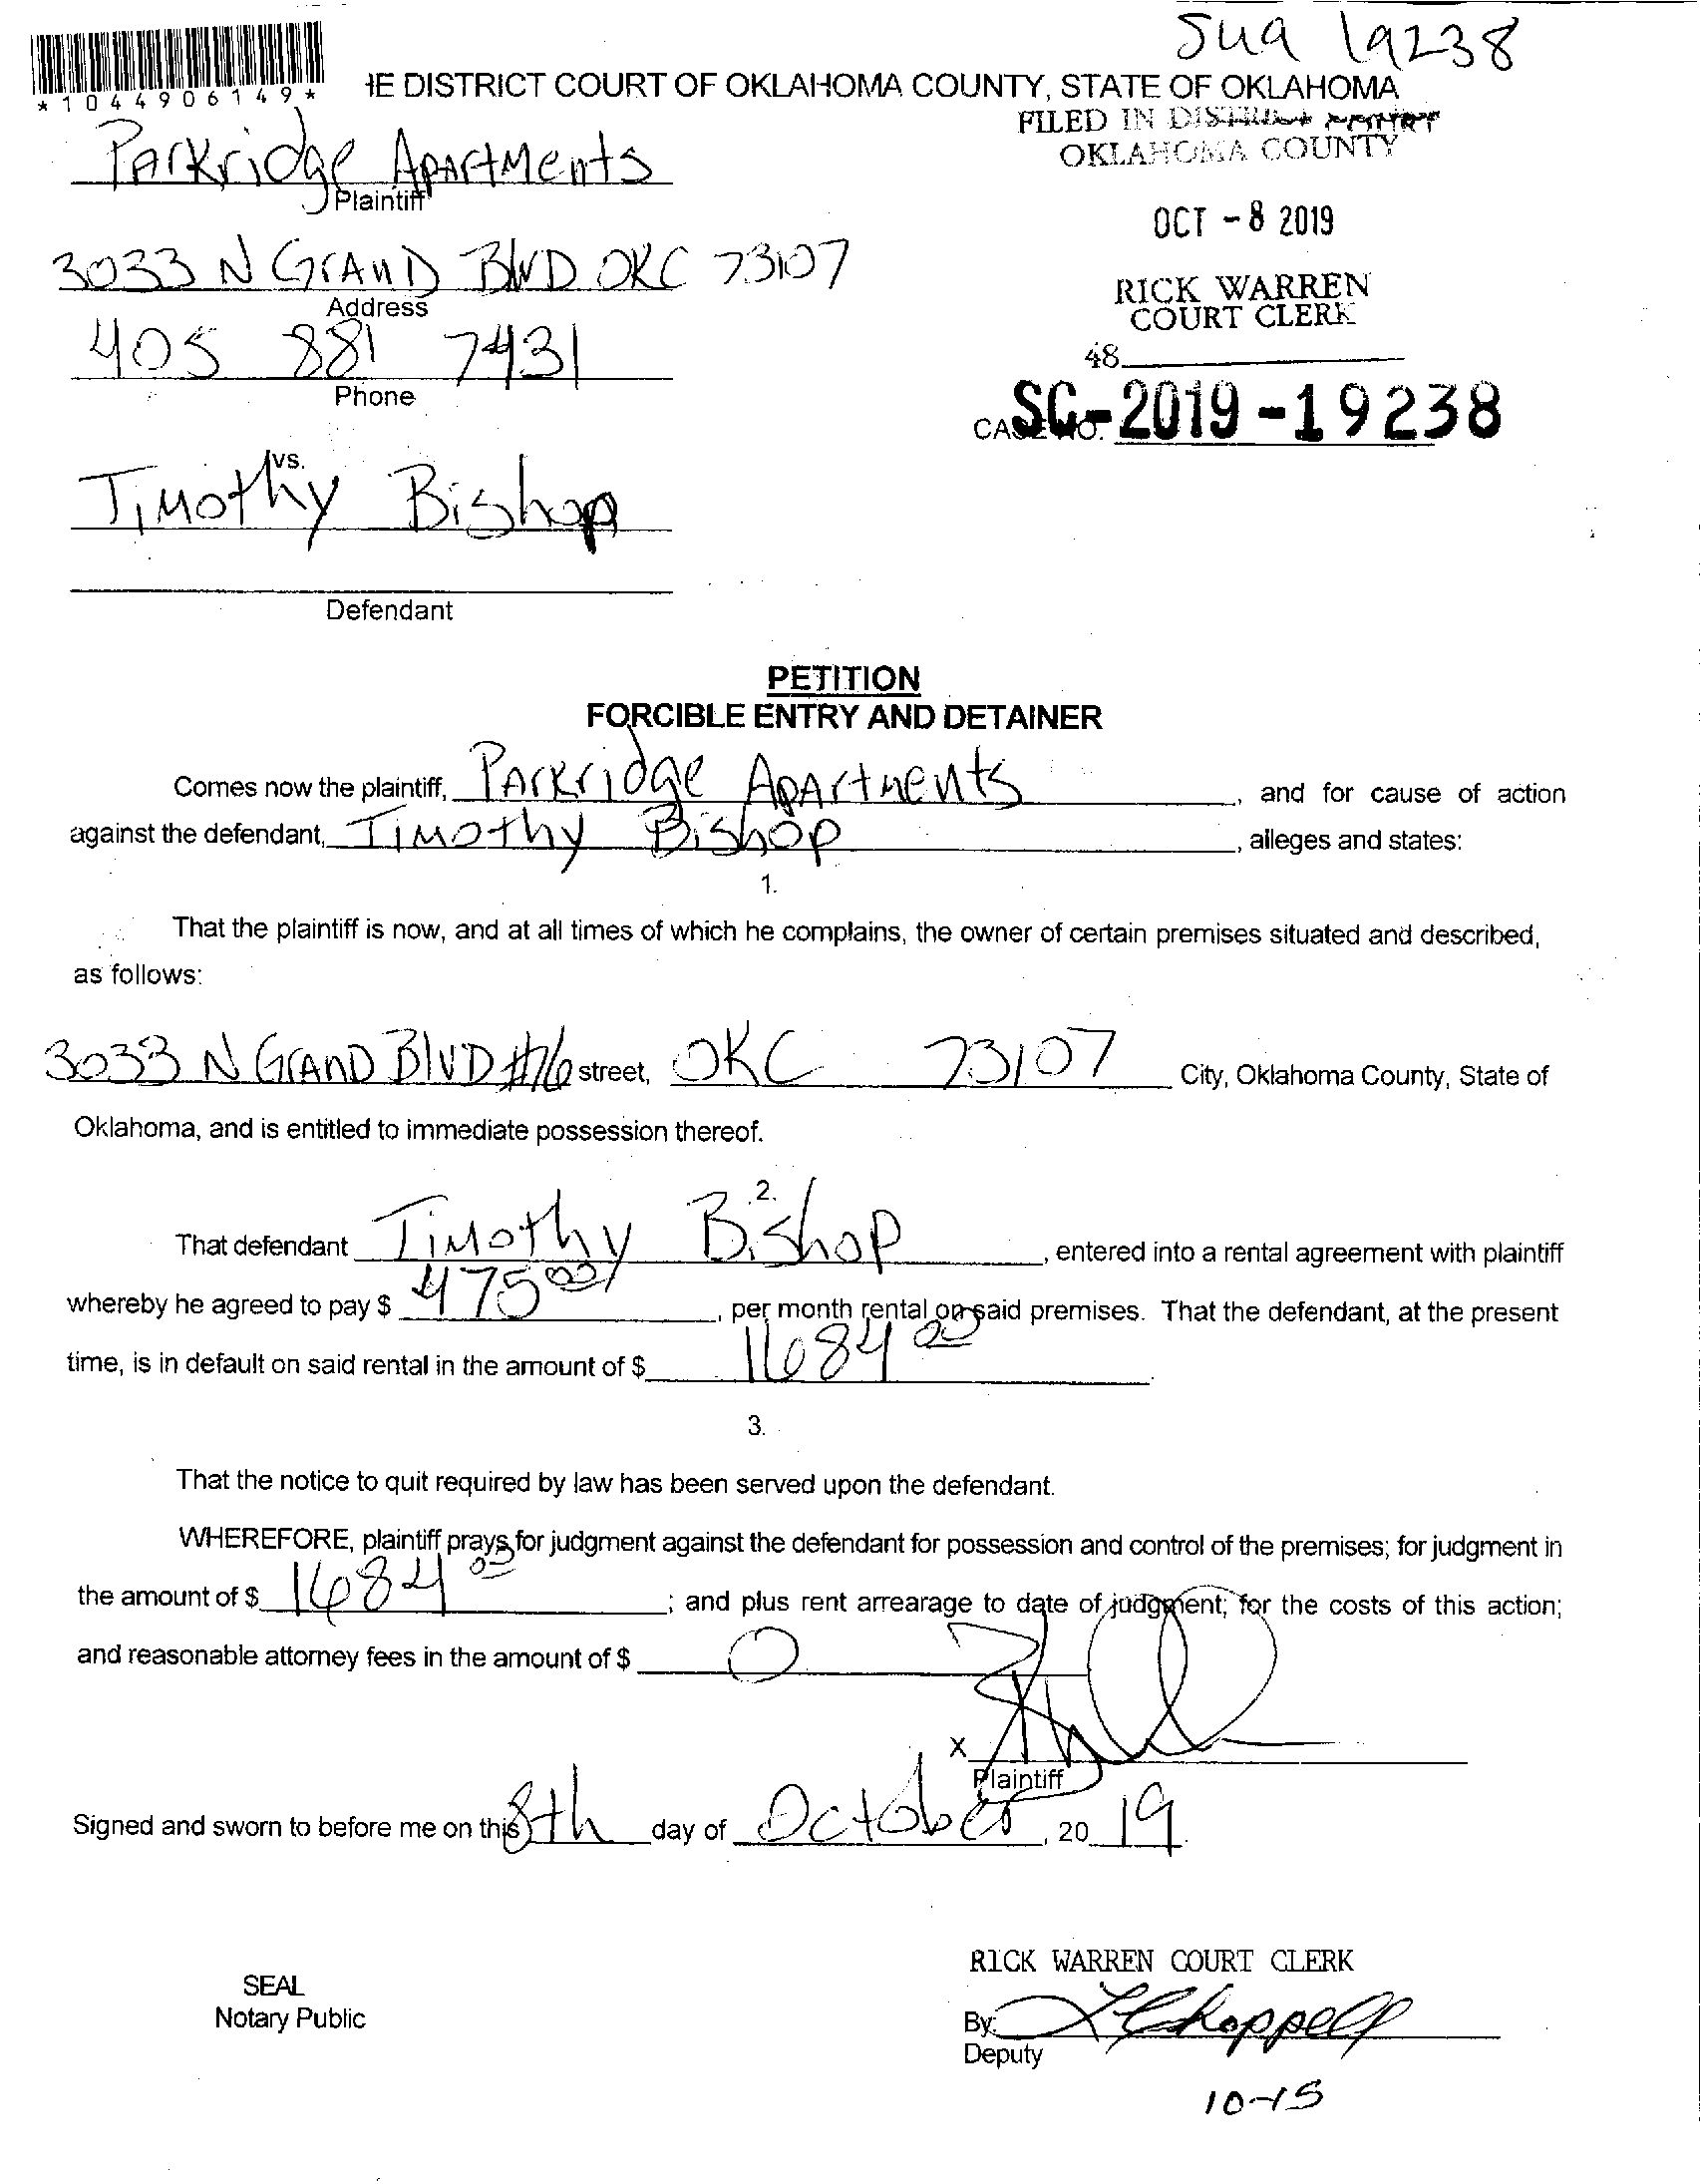 Sua 19238
*1044906149*
HE DISTRICT COURT OF OKLAHOMA COUNTY, STATE OF OKLAHOMA
FILED IN DISTRICT COURT
OKLAHOMA COUNTY
Parkridge Apartments
Plaintiff
OCT - 8 2019
3033 N Grand Blvd OKC 73107
Address
RICK WARREN
COURT CLERK
405 881 7431
Phone
48
CASE NO. SC-2019-19238
vs.
Timothy Bishop
Defendant
PETITION
FORCIBLE ENTRY AND DETAINER
Comes now the plaintiff, Parkridge Apartments, and for cause of action
against the defendant, Timothy Bishop, alleges and states:
1.
That the plaintiff is now, and at all times of which he complains, the owner of certain premises situated and described,
as follows:
3033 N Grand Blvd #76 street, OKC 73107 City, Oklahoma County, State of
Oklahoma, and is entitled to immediate possession thereof.
2.
That defendant Timothy Bishop, entered into a rental agreement with plaintiff
whereby he agreed to pay $ 475 00, per month rental on said premises. That the defendant, at the present
time, is in default on said rental in the amount of $ 1684 00.
3.
That the notice to quit required by law has been served upon the defendant.
WHEREFORE, plaintiff prays for judgment against the defendant for possession and control of the premises; for judgment in
the amount of $ 1684 00; and plus rent arrearage to date of judgment; for the costs of this action;
and reasonable attorney fees in the amount of $ 0
X
Plaintiff
Signed and sworn to before me on this 8th day of October, 20 19.
RICK WARREN COURT CLERK
SEAL
Notary Public
By: L Chappell
Deputy
10-15